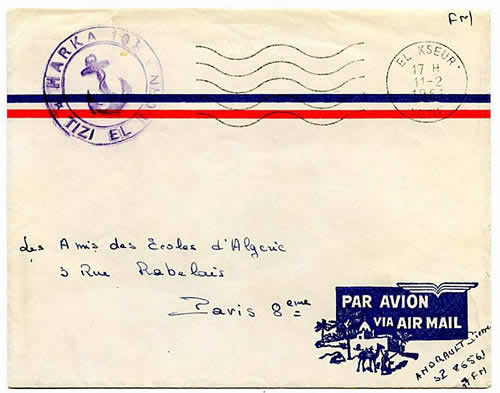 FM
HARKA
TIZI EL
EL KSEUR
17 H
11-2
Les Amis des Écoles d'Algerie
3 Rue Rabelais
Paris 8eme
PAR AVION
VIA AIR MAIL
SZ 86561
AFM